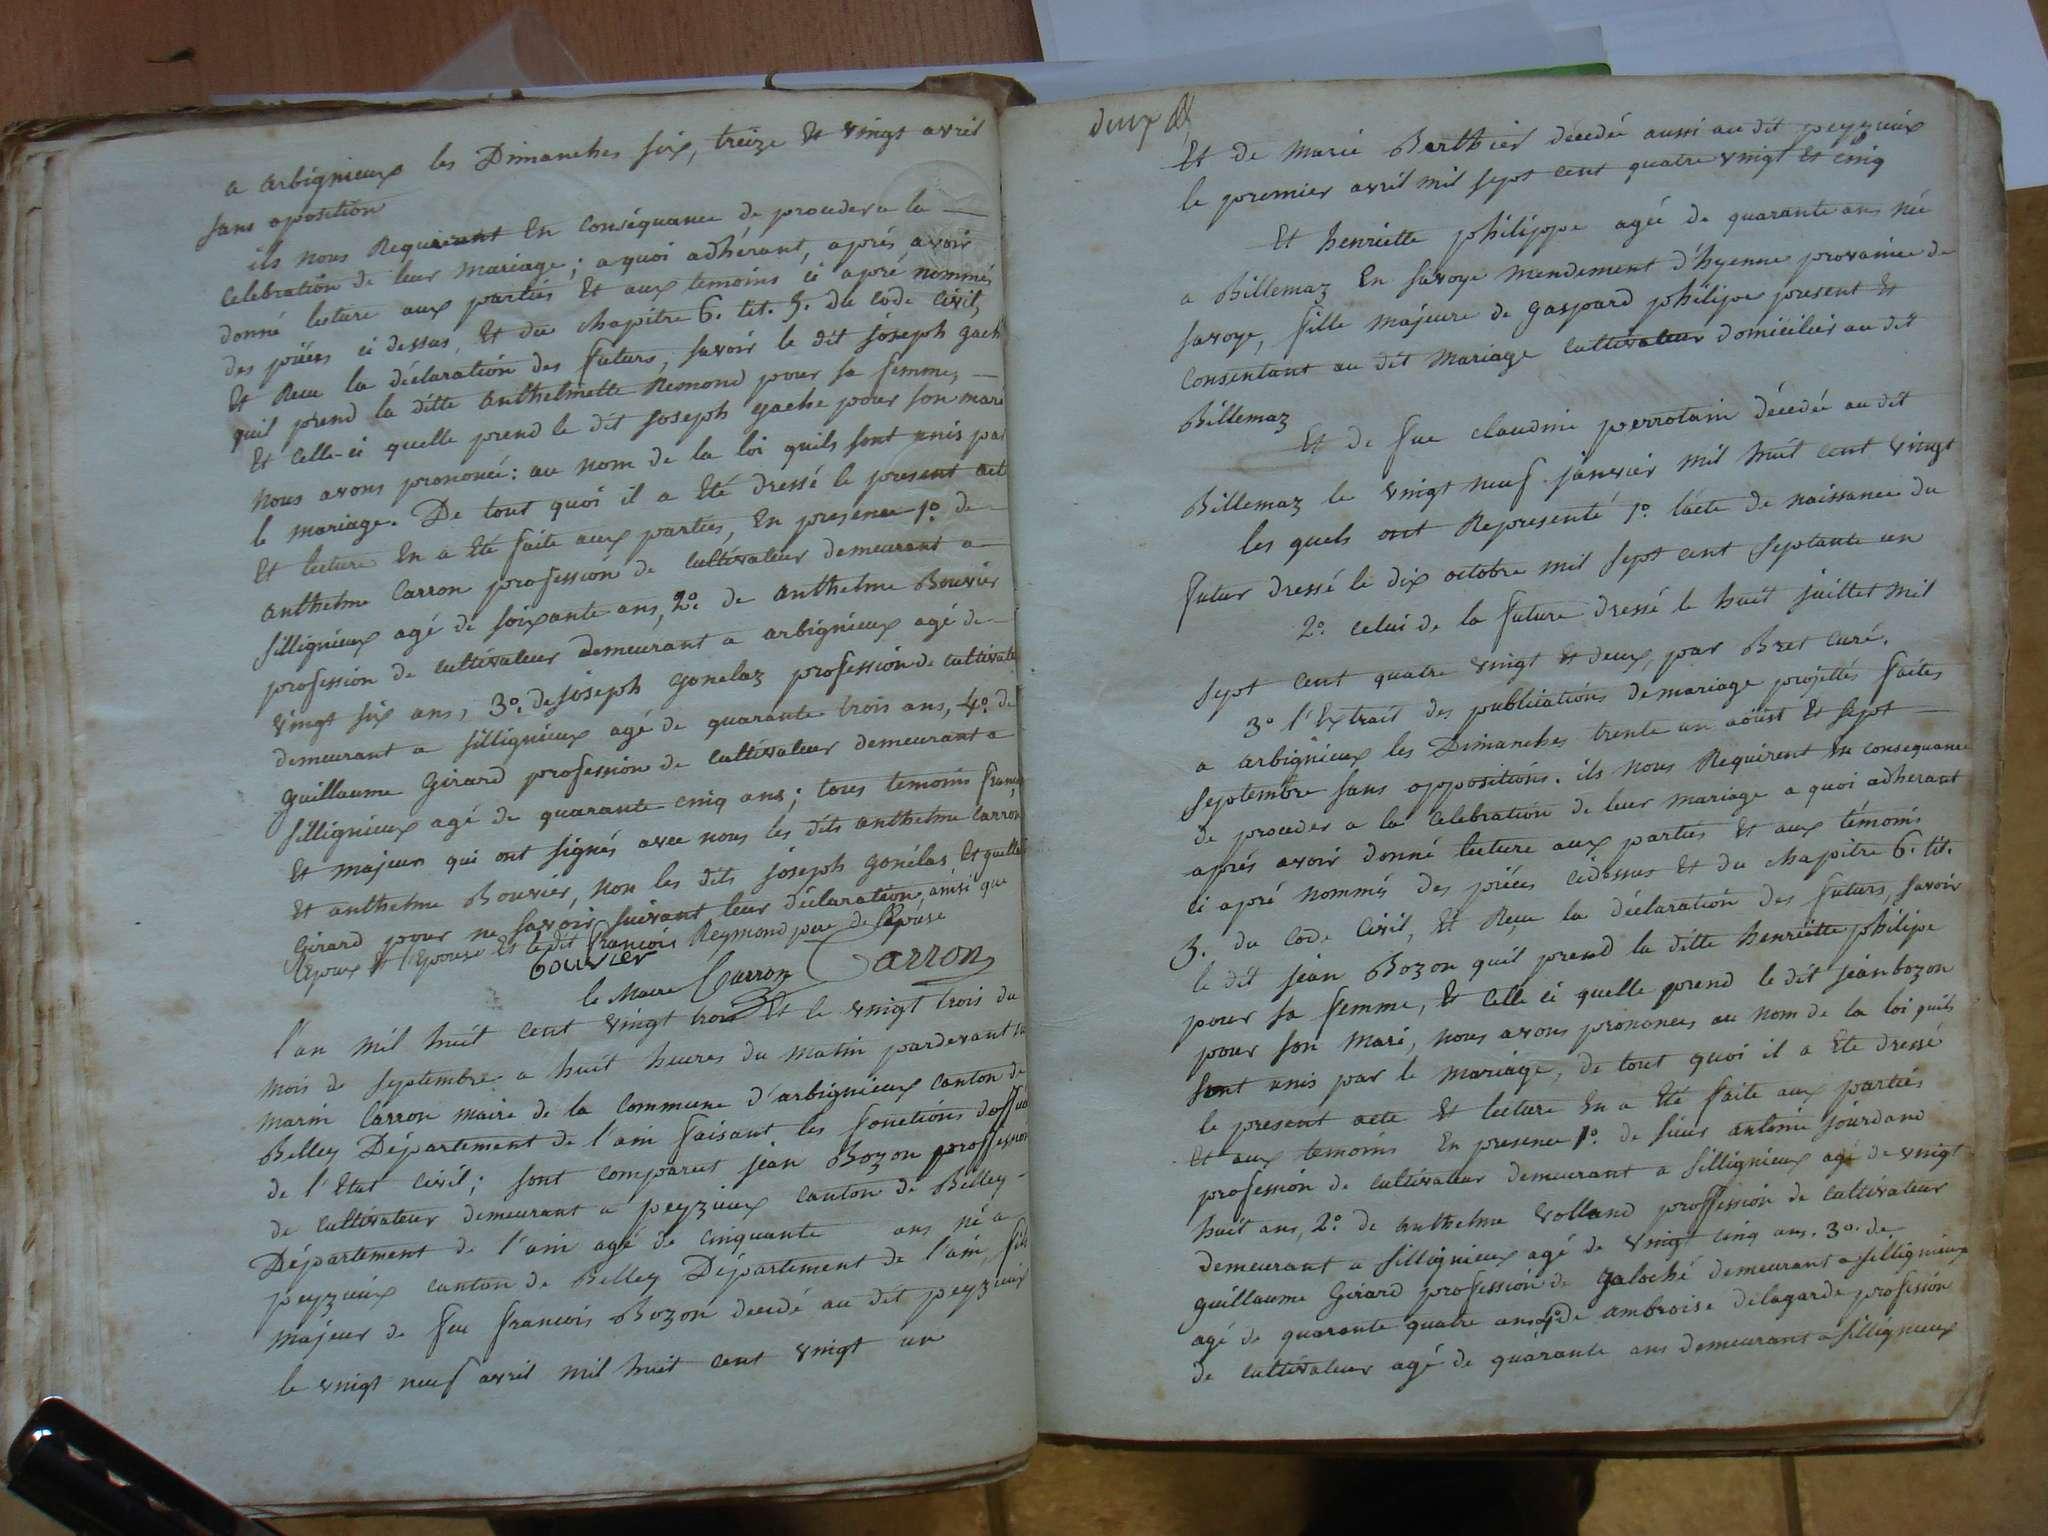 a arbignieux les Dimanches six, treize et vingt avril
sans oposition
ils nous Requierant En conséquance de proceder a la
Celebration de leur mariage; a quoi adhérant, aprés avoir
donné lecture aux parties Et aux temoins ci apré nommés
des piéces ci dessus, Et du chapitre 6. tit. 5. du Code Civil,
Et Reçu la déclaration des futurs, savoir le dit joseph gach
quil prend la ditte anthelmette Remond pour sa femme,
Et Celle-ci quelle prend le dit joseph gache pour son mari
nous avons prononcé: au nom de la loi quils sont unis par
le mariage. De tout quoi il a Eté dressé le present act
Et lecture En a Eté faite aux parties, En presence 1o. de
anthelme Carron profession de Cultivateur demeurant a
sillignieux agé de soixante ans, 2o. de anthelme Bouvier
profession de cultivateur demeurant a arbignieux agé de
vingt six ans, 3o. de joseph gonelaz profession de cultivate
demeurant a sillignieux agé de quarante trois ans, 4o. de
guillaume Girard profession de cultivateur demeurant a
sillignieux agé de quarante cinq ans; tous temoins franç
Et majeur qui ont signés avec nous les dits anthelme Carron
Et anthelme Bouvier, non les dits joseph gonélas Et guille
Girard pour ne savoir suivant leur déclaration, ainsi que
l'époux Et l'Epouse Et le dit françois Reymond pere de l'Epouse
bouvier
le Maire Carron Carron
l'an mil huit cent vingt trois Et le vingt trois du
mois de septembre a huit heures du matin pardevant
marin Carron maire de la Commune d'arbignieux canton de
Belley Département de l'ain faisant les fonctions d'off
de l'Etat Civil; sont comparut jean Bozon proffession
de Cultivateur demeurant a peyzieux canton de Belley
Département de l'ain agé de cinquante ans né a
peyzieux canton de Belley Département de l'ain, fils
majeur de feu françois Bozon decedé au dit peyzieux
le vingt neuf avril mil huit cent vingt un
deux
Et de marie Barthier décedée aussi au dit peyzieux
le premier avril mil sept cent quatre vingt Et cinq
Et henriette philippe agée de quarante ans née
a Billemaz En savoye mendement d'hyenne provaince de
savoye, fille majeure de gaspard philipe present Et
Consentant au dit mariage Cultivateur domicilier au dit
Billemaz
Et de fue claudine perrotain décedée au dit
Billemaz le vingt neuf janvier mil huit cent vingt
les quels ont Representé 1o. l'acte de naissance du
futur dressé le dix octobre mil sept cent septante un
2o. celui de la future dressé le huit juillet mil
sept cent quatre vingt Et deux, par Bret curé.
3o l'Extrait des publications de mariage projettés faites
a arbignieux les Dimanches trente un aoust Et sept
septembre sans oppositions. ils nous Requirent En consequance
de proceder a la celebration de leur mariage a quoi adherant
aprés avoir donné lecture aux parties Et aux témoins
ci apré nommés des piéces cidessus Et du chapitre 6. tit.
5. du Code Civil, Et Reçu la déclaration des futurs, savoir
le dit jean Bozon quil prend la ditte henriette philipe
pour sa femme, Et Celle ci quelle prend le dit jean bozon
pour son mari, nous avons prononcés au nom de la loi quils
sont unis par le mariage, de tout quoi il a Eté dressé
le present acte Et lecture En a Eté faite aux parties
Et aux temoins En presence 1o. de sieur antoine jourdand
profession de cultivateur demeurant a sillignieux agé de vingt
huit ans, 2o. de anthelme volland proffession de cultivateur
demeurant a sillignieux agé de vingt cinq ans. 3o. de
guillaume Girard profession de galoché demeurant a sillignieux
agé de quarante quatre ans 4o de ambroise delagarde profession
de cultivateur agé de quarante ans demeurant a sillignieux